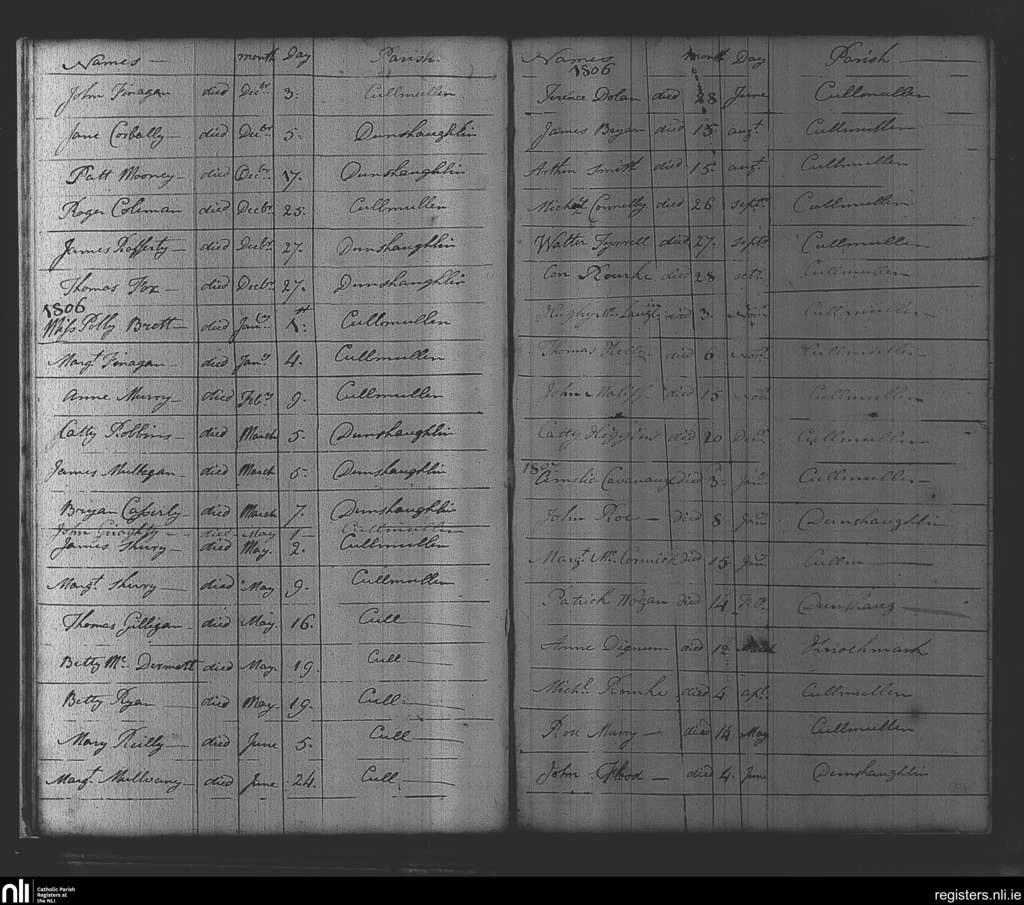 Names month Day Parish
John Finagan died Decbr 3: Cullmullen
Jane Corbally died Decbr 5. Dunshaughlin
Patt Mooney died Decbr 17. Dunshaughlin
Roger Coleman died Decbr 25. Cullmullen
James Rofferty died Decbr 27. Dunshaughlin
Thomas Fox died Decbr 27. Dunshaughlin
1806
Miss Polly Brett died Jany Cullmullen
Margt Finagan died Jany 4. Cullmullen
Anne Murry died Feby 9. Cullmullen
Catty Robbins died March 5. Dunshaughlin
James Mulligan died March 5. Dunshaughlin
Bryan Cafferty died March 7. Dunshaughlin
John Geraghty died May 1 Cullmullen
James Sherry died May 2. Cullmullen
Margt Sherry died May 9. Cullmullen
Thomas Gilligan died May 16. Cull
Betty Mc Dermott died May 19. Cull
Betty Ryan died May 19. Cull
Mary Reilly died June 5. Cull
Margt Mullvany died June 24. Cull
Names month Day Parish
1806
Terence Dolan died 28 June Cullmullen
James Bryan died 15 augt Cullmullen
Arthur Smith died 15 augt Cullmullen
Michl Connelly died 26 septr Cullmullen
Walter Tyrrell died 27. septr Cullmullen
Con Rourke died 28 octr Cullmullen
Hughy Mc died 3 Novr Cullmullen
Thomas Kelly died 6 Novr Cullmullen
John died 15 Novr Cullmullen
Catty Higgins died 20 Decr Cullmullen
1807
Cavenaugh died 3. Jany Cullmullen
John Roe died 8 Jany Dunshaughlin
Margt Mc Cormick died 15 Jany Cullm
Patrick Hogan died 14 Feby Dunshaug
Anne Dignum died 12 March Knockmark
Michl Rourke died 4 apl Cullmullen
Rose Murry died 14 May Cullmullen
John Flood died 4. June Dunshaughlin
nli Catholic Parish
Registers at
the NLI
registers.nli.ie